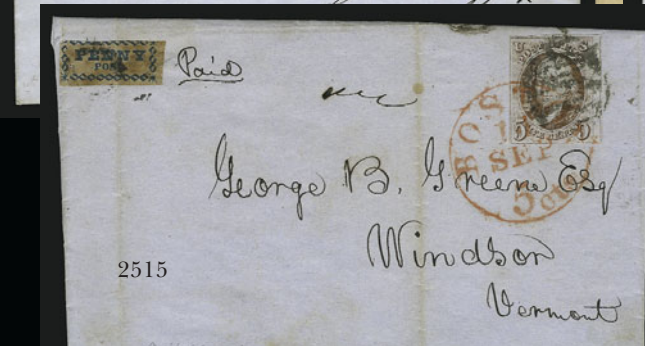 PENNY
POST.
Paid
5 5
BOSTON
SEP
5 cts
George B. Greene Esq
Windson
Vermont
2515